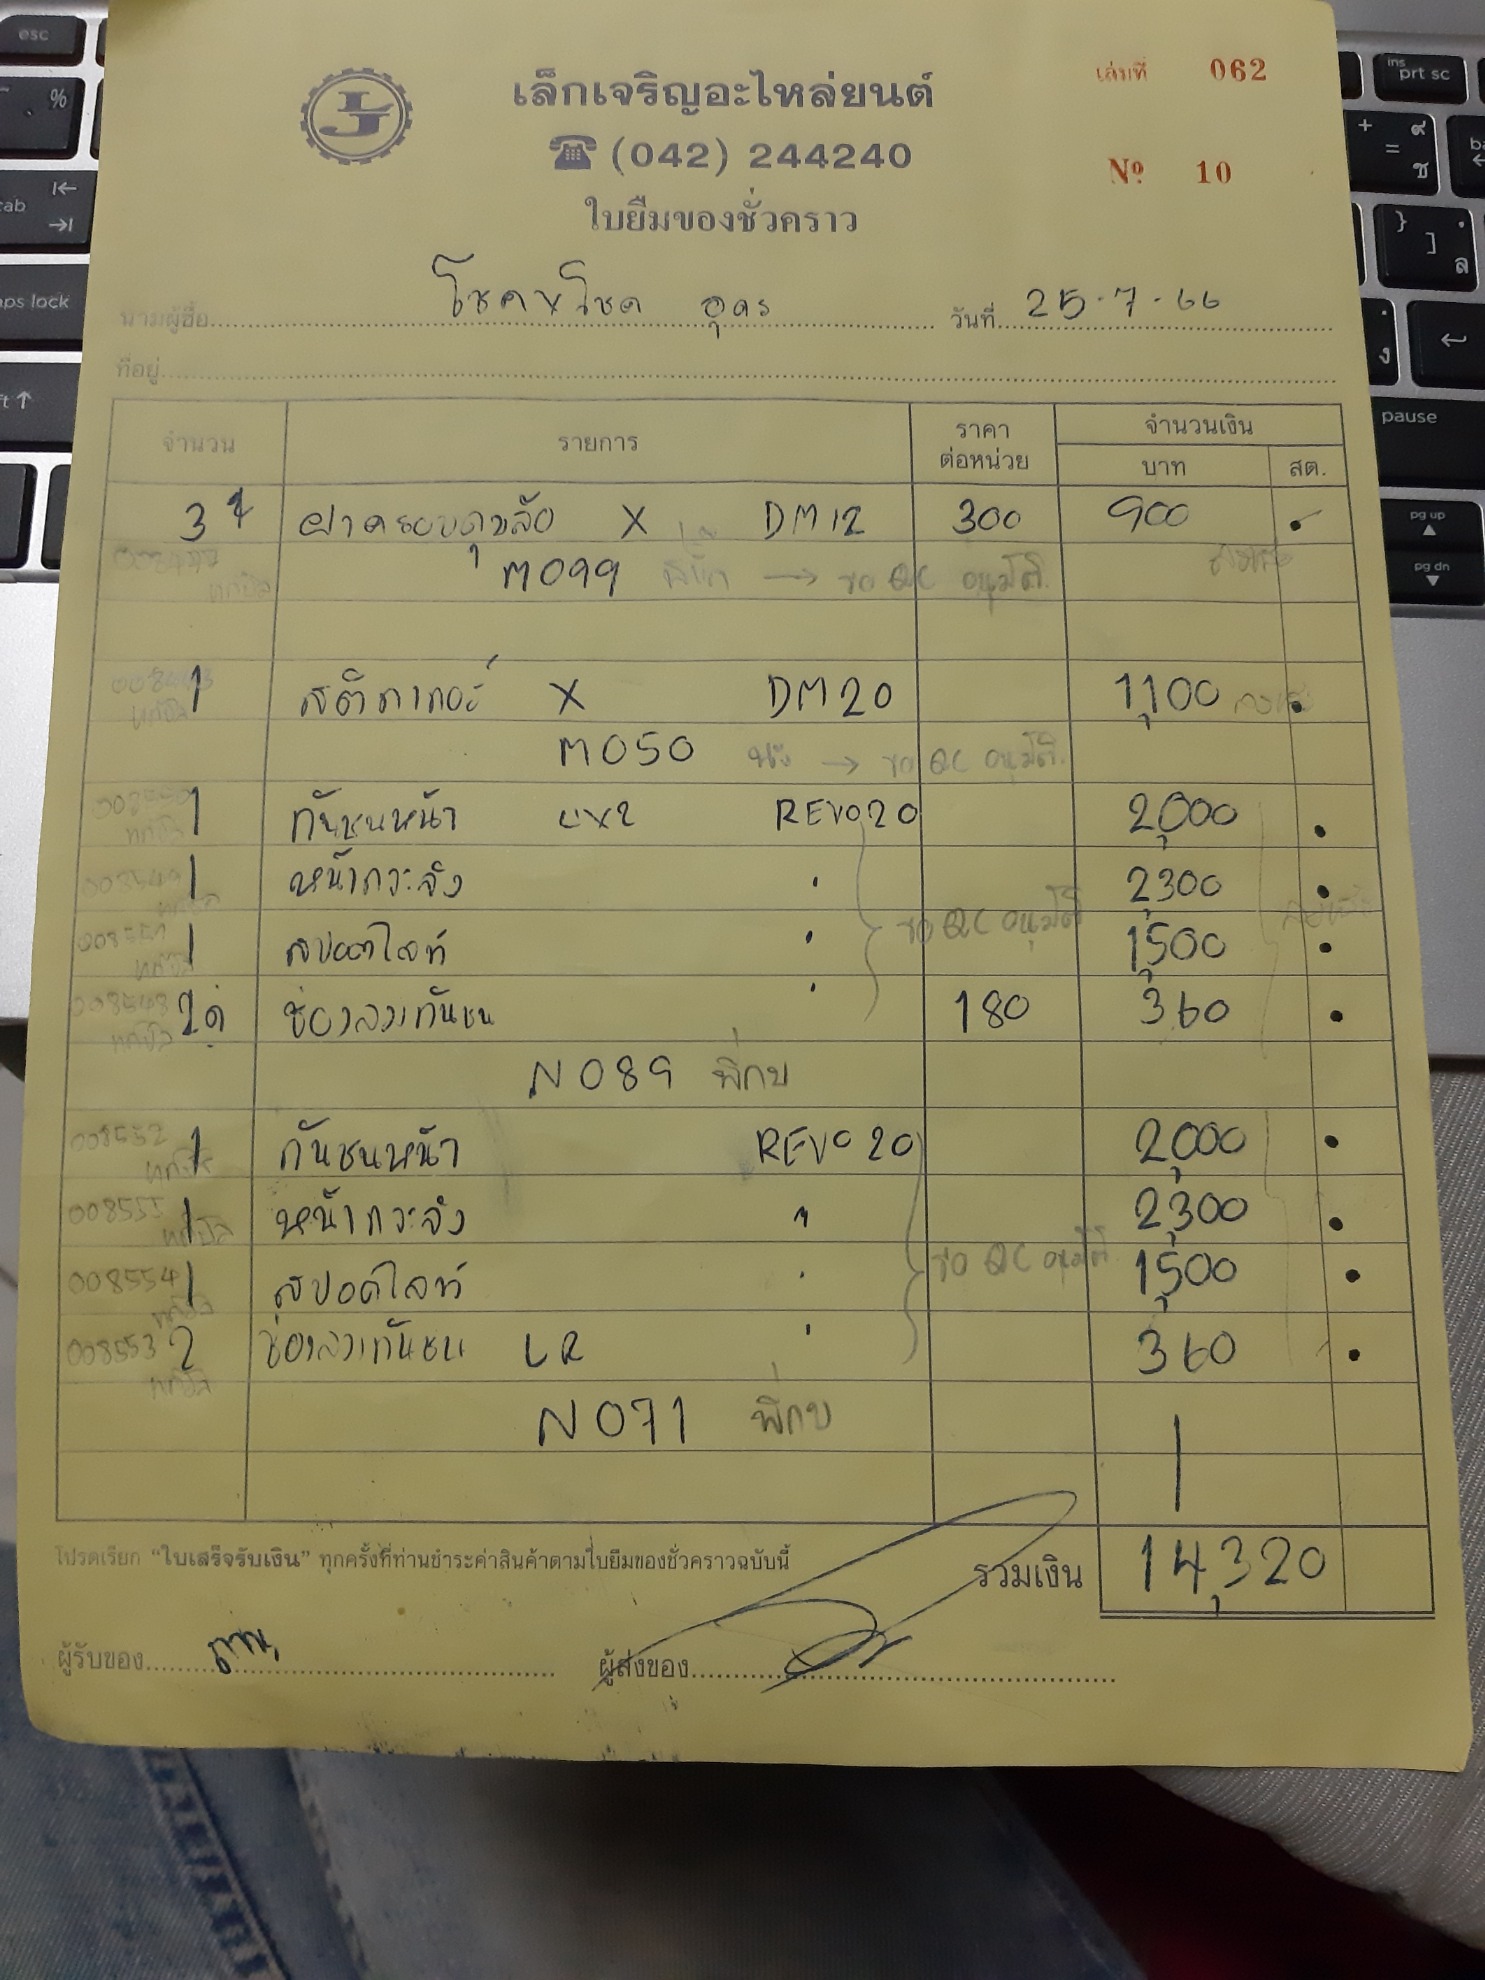 เล็กเจริญอะไหล่ยนต์
เล่มที่ 062
☎ (042) 244240
Nº 10
ใบยืมของชั่วคราว
นามผู้ซื้อ โชคนำโชค อุดร วันที่ 25-7-66
ที่อยู่
จำนวน รายการ ราคาต่อหน่วย จำนวนเงิน บาท สต.
3 ฝาครอบดุมล้อ X DM12 300 900
M099 → ขอ QC อนุมัติ
1 สติกเกอร์ X DM20 1,100
M050 → ขอ QC อนุมัติ
1 กันชนหน้า 4x2 REVO20 2,000
1 หน้ากระจัง " 2,300
ขอ QC อนุมัติ
1 สปอตไลท์ " 1,500
008548 2 ช่องลมกันชน " 180 360
N089 พี่กบ
008552 1 กันชนหน้า REVO20 2,000
008555 1 หน้ากระจัง " 2,300
ขอ QC อนุมัติ
008554 1 สปอตไลท์ " 1,500
008553 2 ช่องลมกันชน LR " 360
N071 พี่กบ
โปรดเรียก "ใบเสร็จรับเงิน" ทุกครั้งที่ท่านชำระค่าสินค้าตามใบยืมของชั่วคราวฉบับนี้
รวมเงิน 14,320
ผู้รับของ ผู้ส่งของ
esc
%
tab
caps lock
ins
prt sc
pause
pg up
pg dn